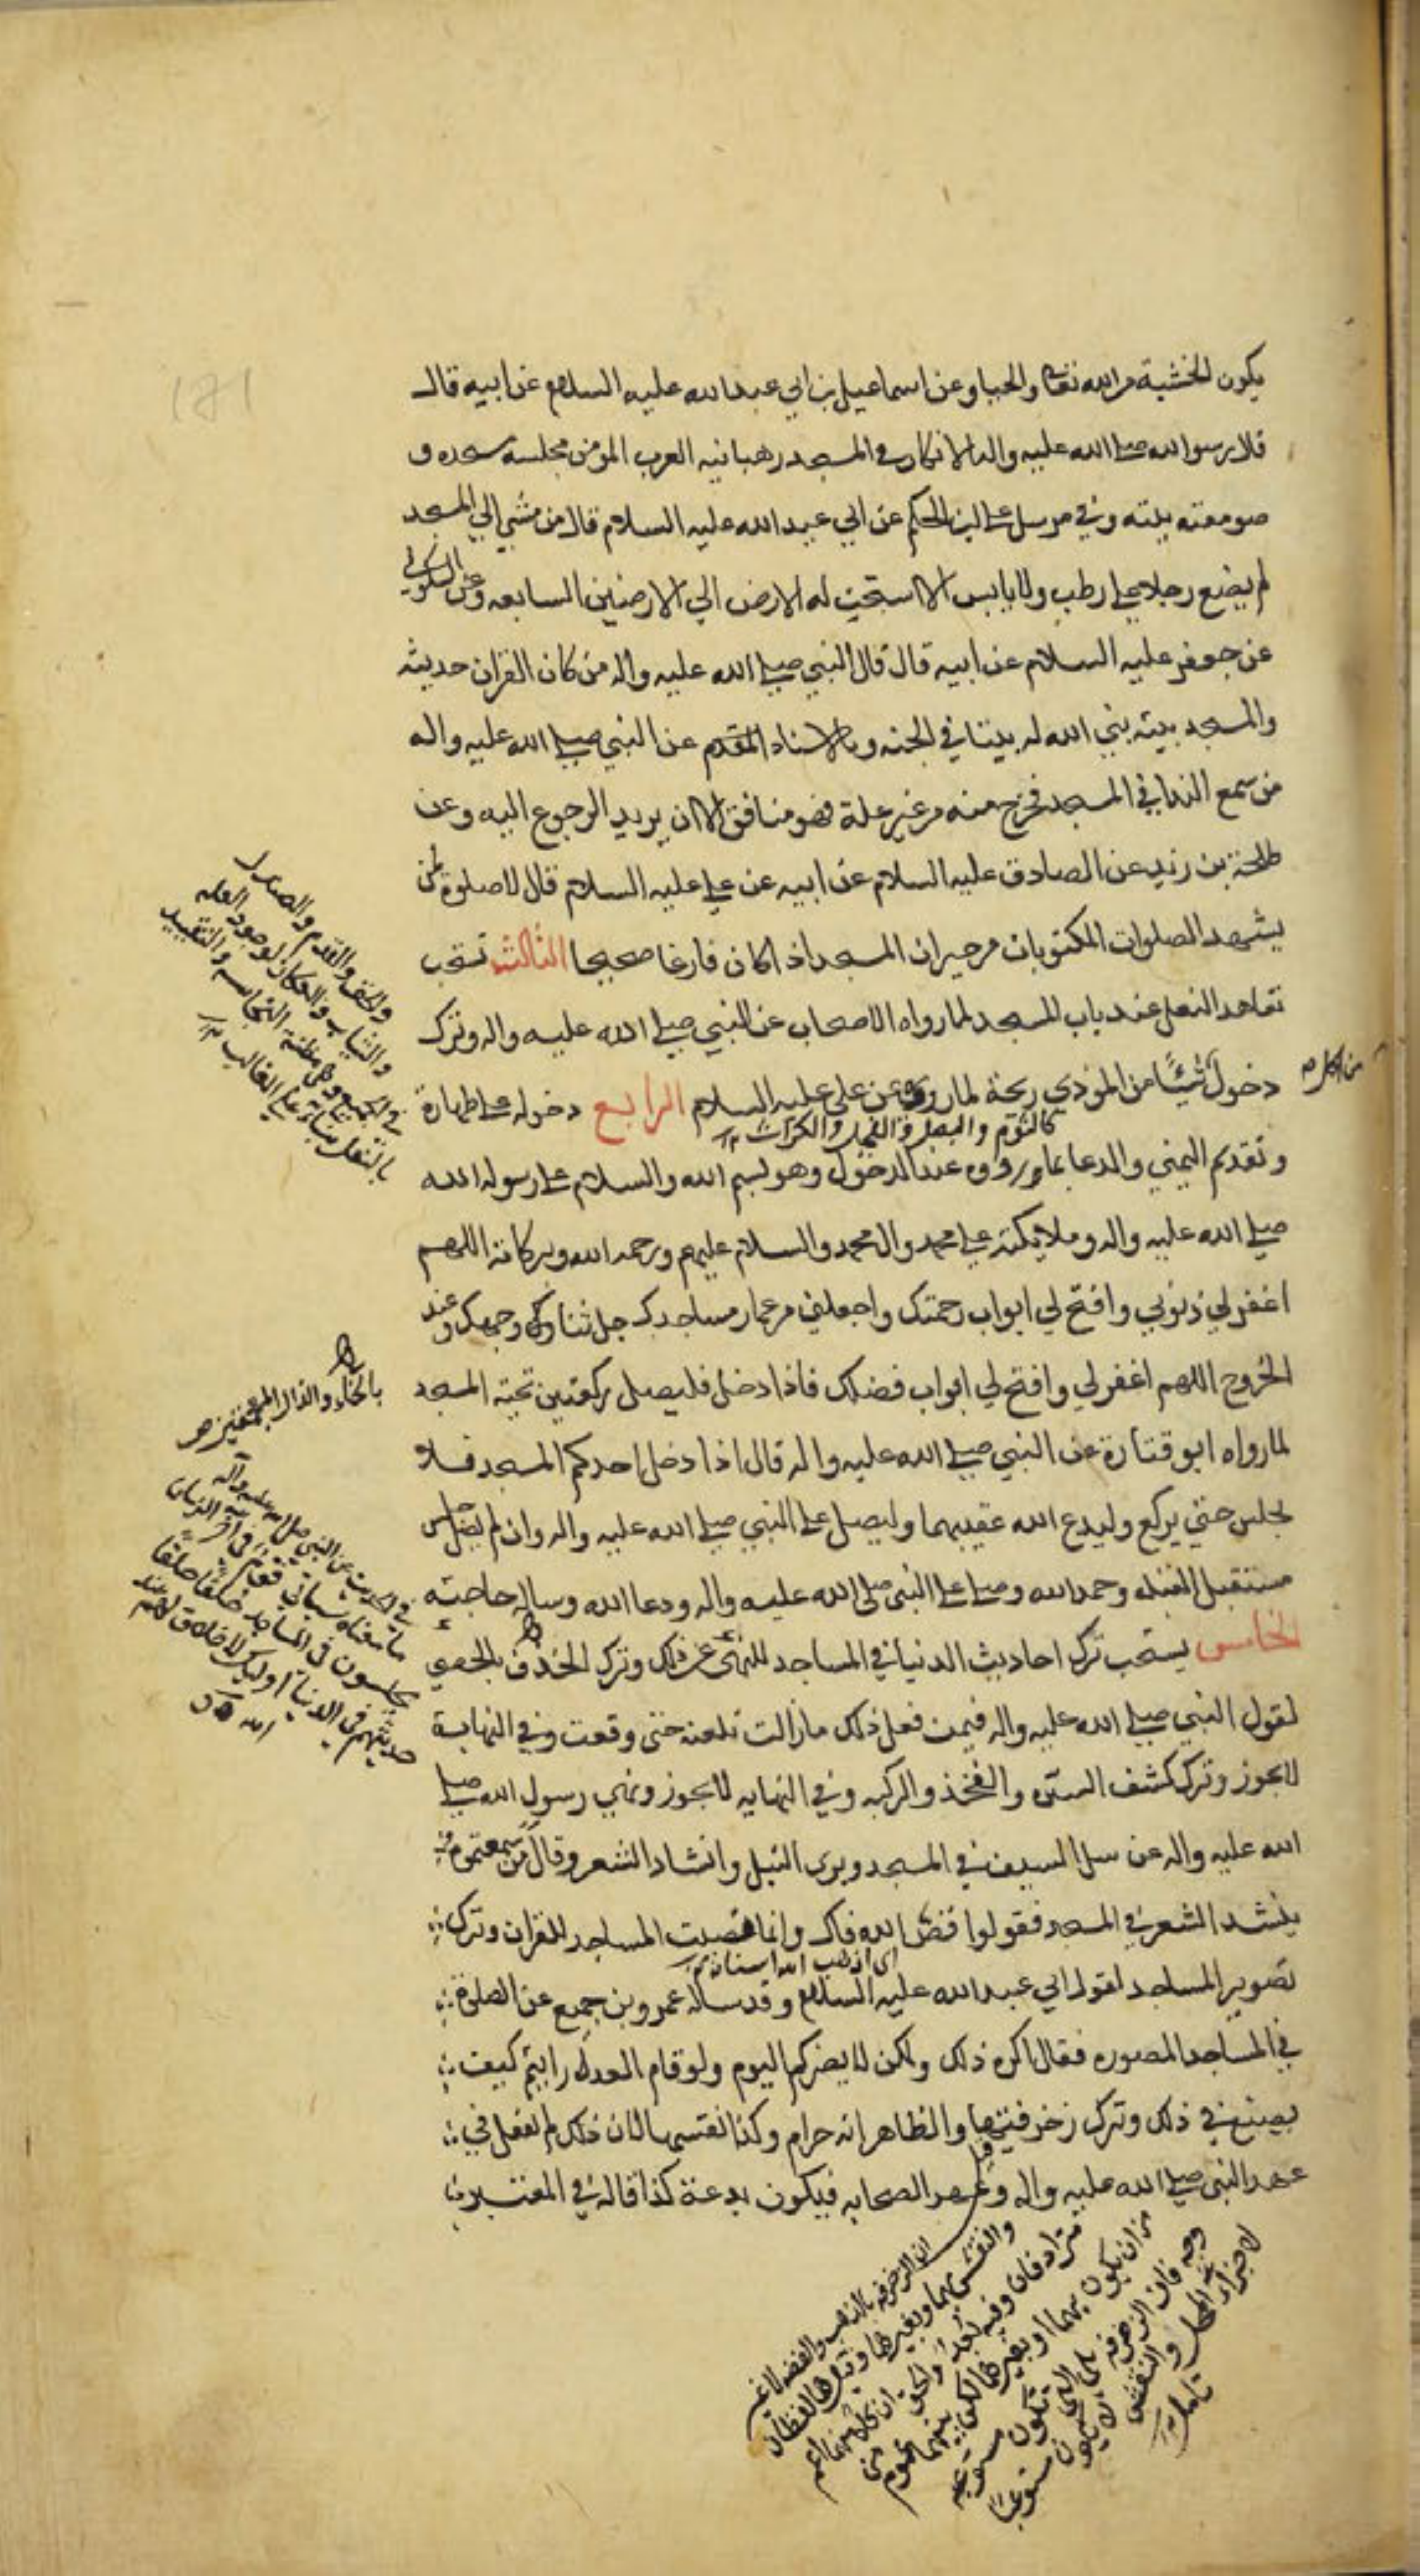 يكون الخشية من الله تعالى والحيا وعن اسماعيل بن ابي عبد الله عليه السلام عن ابيه قال
قال رسول الله صلى الله عليه واله الاتكا في المسجد رهبانيه العرب المؤمن مجلسه مسجده و
صومعته بيته وفي مرسل علي ابن الحكم عن ابي عبد الله عليه السلام قال من مشي الي المسجد
لم يضع رجلا علي رطب ولا يابس الا سبحت له الارض الي الارضين السابعه وعن السكوني
عن جعفر عليه السلام عن ابيه قال قال النبي صلي الله عليه واله من كان القران حديثه
والمسجد بيته بني الله له بيتا في الجنه وبالاسناد المتقدم عن النبي صلي الله عليه واله
من سمع الندا في المسجد فخرج منه من غير علة فهو منافق الا ان يريد الرجوع اليه وعن
طلحة بن زيد عن الصادق عليه السلام عن ابيه عن علي عليه السلام قال لا صلوة لمن
يشهد الصلوات المكتوبات من جيران المسجد اذا كان فارغا صحيحا الثالث تستحب
تعاهد النعل عند باب المسجد لما رواه الاصحاب عن النبي صلي الله عليه واله وترك
دخول شيئا من المؤذي ريحة لما روى عن علي عليه السلام الرابع دخوله علي طهارة
كالثوم والبصل والفجل والكراث
وتقديم اليمني والدعا بما عند الدخول وهو بسم الله والسلام علي رسول الله
صلي الله عليه واله وملائكته علي محمد وال محمد والسلام عليهم ورحمه الله وبركاته اللهم
اغفر لي ذنوبي وافتح لي ابواب رحمتك واجعلني من عمار مساجدك جل ثناؤك وجهك وعند
الخروج اللهم اغفر لي وافتح لي ابواب فضلك فاذا دخل فليصل ركعتين تحية المسجد
لما رواه ابو قتادة عن النبي صلي الله عليه واله قال اذا دخل احدكم المسجد فلا
يجلس حتي يركع وليدع الله عقيبهما وليصل علي النبي صلي الله عليه واله وان لم يصل جلس
مستقبل القبله وحمد الله وصلي علي النبي صلي الله عليه واله ودعا الله وساله حاجته
الخامس يستحب ترك احاديث الدنيا في المساجد للنهي عن ذلك وترك الخذف بالحصي
لقول النبي صلي الله عليه واله فيمن فعل ذلك ما زالت تلعنه حتى وقعت وفي النهاية
لا يجوز وترك كشف السره والفخذ والركبه وفي النهايه لا يجوز ونهي رسول الله صلي
الله عليه واله عن سل السيف في المسجد وبرى النبل وانشاد الشعر وقال من سمعتموه
ينشد الشعر في المسجد فقولوا فض الله فاك وانما نصبت المساجد للقران وترك
اي اذهب الله اسنانك
تصوير المساجد لقول ابي عبد الله عليه السلام وقد ساله عمرو بن جميع عن الصلوة
في المساجد المصوره فقال اكره ذلك ولكن لا يضركم اليوم ولو قام العدل رايتم كيف
يصنع في ذلك وترك زخرفتها والظاهر انه حرام وكذا نقشها لان ذلك لم يفعل في
عهد النبي صلي الله عليه واله وعهد الصحابه فيكون بدعة كذا قاله في المعتبر
والخف والقدم
والثياب والعكاز لوجود العله
في الجميع وهي مظنة النجاسه والتقييد
بالنعل بناء علي الغالب
بالخاء والذال المعجمتين
في الحديث عن النبي صلى الله عليه وآله
ما معناه سياتي قوم في آخر الزمان
يجلسون في المساجد حلقا حلقا
حديثهم في الدنيا
الله
الزخرفه بالذهب والفضه
والنقش بهما وبغيرهما وقيل هما لفظان
مترادفان وفيه بعد والحق ان
من ان يكون بهما او بغيرهما لكن بينهما عموم من
وجه فان الزخرفه
والنقش
تامل